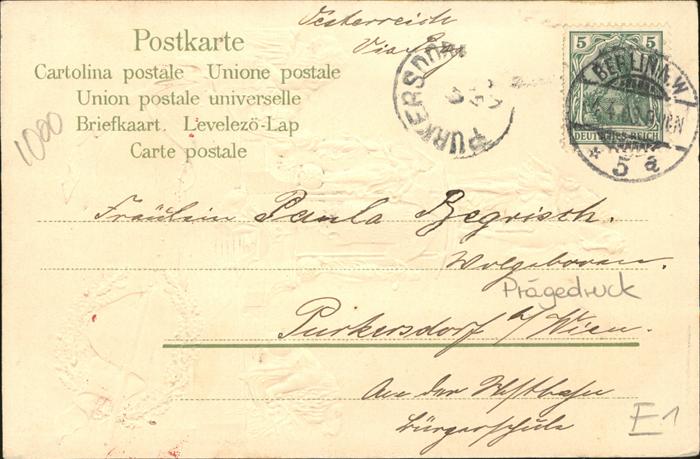 Oesterreich
Via
Postkarte
Cartolina postale Unione postale
Union postale universelle
Briefkaart. Levelező-Lap
Carte postale
1000
PURKERSDORF
5 5
DEUTSCHES REICH
BERLIN W
* 5 a
Fräulein Paula Begrisch.
Wolgeboren.
Prägedruck
Purkersdorf b/Wien.
An der
Bürgerschule
E1